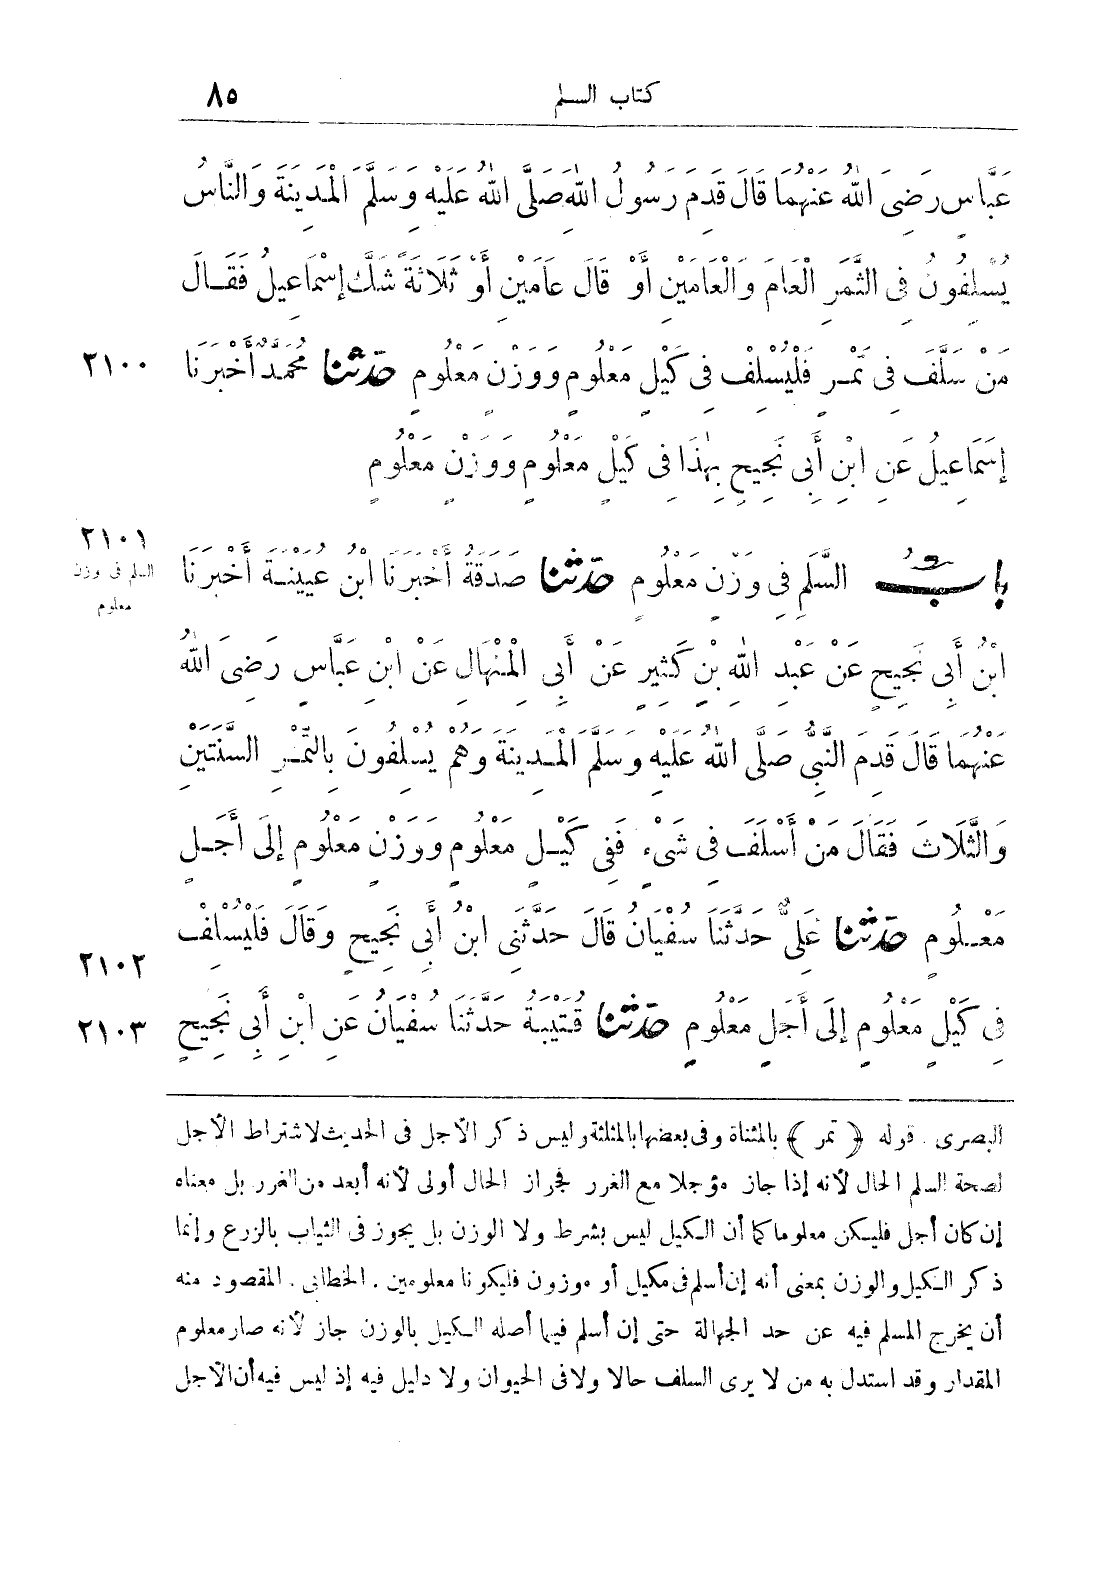 كتاب السلم ٨٥
عَبَّاسٍ رَضِىَ اللهُ عَنْهُمَا قَالَ قَدِمَ رَسُولُ اللهِ صَلَّى اللهُ عَلَيْهِ وَسَلَّمَ الْمَدِينَةَ وَالنَّاسُ
يُسْلِفُونَ فِى الثَّمَرِ الْعَامَ وَالْعَامَيْنِ أَوْ قَالَ عَامَيْنِ أَوْ ثَلَاثَةً شَكَّ إِسْمَاعِيلُ فَقَالَ
مَنْ سَلَّفَ فِى تَمْرٍ فَلْيُسْلِفْ فِى كَيْلٍ مَعْلُومٍ وَوَزْنٍ مَعْلُومٍ حَدَّثَنَا مُحَمَّدٌ أَخْبَرَنَا ٢١٠٠
إِسْمَاعِيلُ عَنِ ابْنِ أَبِى نَجِيحٍ بِهٰذَا فِى كَيْلٍ مَعْلُومٍ وَوَزْنٍ مَعْلُومٍ
٢١٠١
السلم فى وزن
معلوم
بَابُ السَّلَمِ فِى وَزْنٍ مَعْلُومٍ حَدَّثَنَا صَدَقَةُ أَخْبَرَنَا ابْنُ عُيَيْنَةَ أَخْبَرَنَا
ابْنُ أَبِى نَجِيحٍ عَنْ عَبْدِ اللهِ بْنِ كَثِيرٍ عَنْ أَبِى الْمِنْهَالِ عَنْ ابْنِ عَبَّاسٍ رَضِىَ اللهُ
عَنْهُمَا قَالَ قَدِمَ النَّبِىُّ صَلَّى اللهُ عَلَيْهِ وَسَلَّمَ الْمَدِينَةَ وَهُمْ يُسْلِفُونَ بِالتَّمْرِ السَّنَتَيْنِ
وَالثَّلَاثَ فَقَالَ مَنْ أَسْلَفَ فِى شَىْءٍ فَفِى كَيْلٍ مَعْلُومٍ وَوَزْنٍ مَعْلُومٍ إِلَى أَجَلٍ
مَعْلُومٍ حَدَّثَنَا عَلِىٌّ حَدَّثَنَا سُفْيَانُ قَالَ حَدَّثَنِى ابْنُ أَبِى نَجِيحٍ وَقَالَ فَلْيُسْلِفْ ٢١٠٢
فِى كَيْلٍ مَعْلُومٍ إِلَى أَجَلٍ مَعْلُومٍ حَدَّثَنَا قُتَيْبَةُ حَدَّثَنَا سُفْيَانُ عَنِ ابْنِ أَبِى نَجِيحٍ ٢١٠٣
البصرى . قوله ﴿ تمر ﴾ بالمثناة وفى بعضها بالمثلثة وليس ذكر الأجل فى الحديث لاشتراط الأجل
لصحة السلم الحال لأنه إذا جاز مؤجلا مع الغرر فجواز الحال أولى لأنه أبعد من الغرر بل معناه
إن كان أجل فليكن معلوما كما أن الكيل ليس بشرط ولا الوزن بل يجوز فى الثياب بالزرع وإنما
ذكر الكيل والوزن بمعنى أنه إن أسلم فى مكيل أو موزون فليكونا معلومين . الخطابى . المقصود منه
أن يخرج المسلم فيه عن حد الجهالة حتى إن أسلم فيما أصله الكيل بالوزن جاز لأنه صار معلوم
المقدار وقد استدل به من لا يرى السلف حالا ولا فى الحيوان ولا دليل فيه إذ ليس فيه أن الأجل